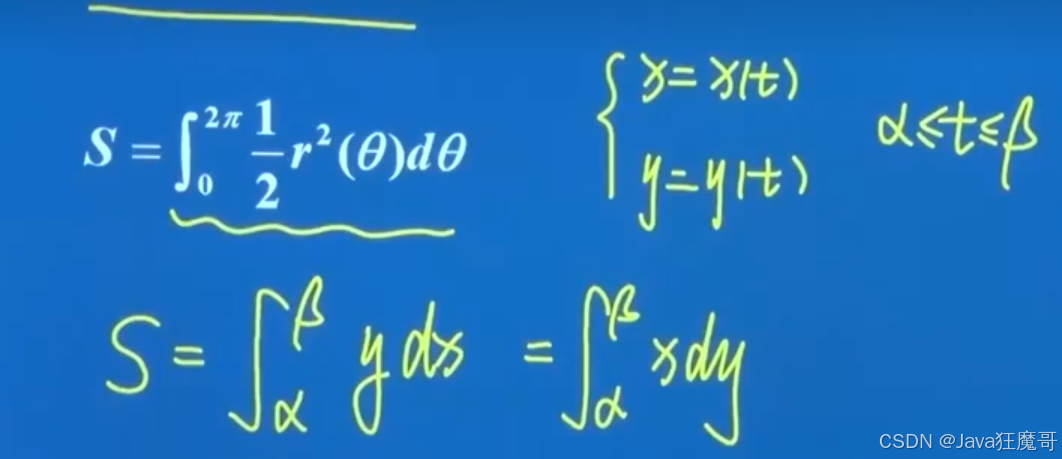 S = ∫₀^{2π} 1/2 r²(θ)dθ
{ x = x(t)
y = y(t)
α ≤ t ≤ β
S = ∫_α^β y dx = ∫_α^β x dy
CSDN @Java狂魔哥